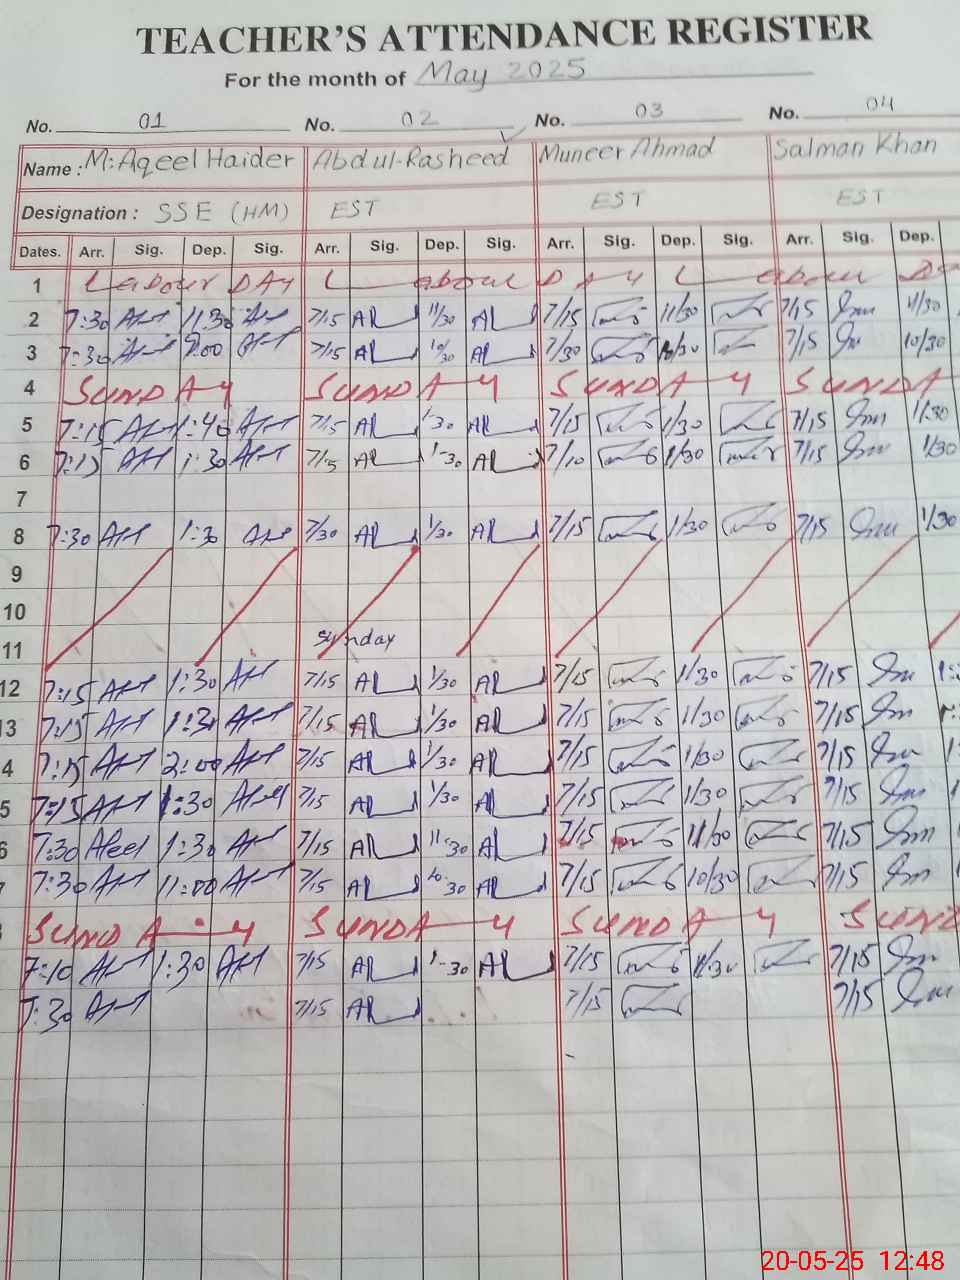 TEACHER'S ATTENDANCE REGISTER
For the month of May 2025
No. 01 No. 02 No. 03 No. 04
Name : M. Aqeel Haider Abdul-Rasheed Muneer Ahmad Salman Khan
Designation : SSE (HM) EST EST EST
Dates. Arr. Sig. Dep. Sig. Arr. Sig. Dep. Sig. Arr. Sig. Dep. Sig. Arr. Sig. Dep.
1 Labour DAY Labour DAY Labour
2 7:30 11:30 7/15 AR 11/30 AR 7/15 11/30 7/15 11/30
3 7:30 7/15 AR 10/30 AR 7/30 7/15 10/30
4 SUNDAY SUNDAY SUNDAY SUNDA
5 7:15 1:40 7/15 AR 1-30 AR 7/15 1/30 7/15 1/30
6 7:15 1:30 7/15 AR 1-30 AR 7/10 1/30 7/15 1/30
7
8 7:30 1:30 7/30 AR 1/30 AR 7/15 1/30 7/15 1/30
9
10
11 Sunday
12 7:15 1:30 7/15 AR 1/30 AR 7/15 1/30 7/15
13 7:15 1:30 7/15 AR 1/30 AR 7/15 1/30 7/15
4 7:15 2:00 7/15 AR 1/30 AR 7/15 1/30 7/15
5 7:15 1:30 7/15 AR 1/30 AR 7/15 1/30 7/15
6 7:30 1:30 7/15 AR 11-30 AR 7/15 11/30 7/15
7 7:30 11:00 7/15 AR 10-30 AR 7/15 10/30 7/15
SUNDAY SUNDAY SUNDAY SUND
7:10 1:30 7/15 AR 1-30 AR 7/15 7/15
7:30 7/15 AR 7/15 7/15
20-05-25 12:48